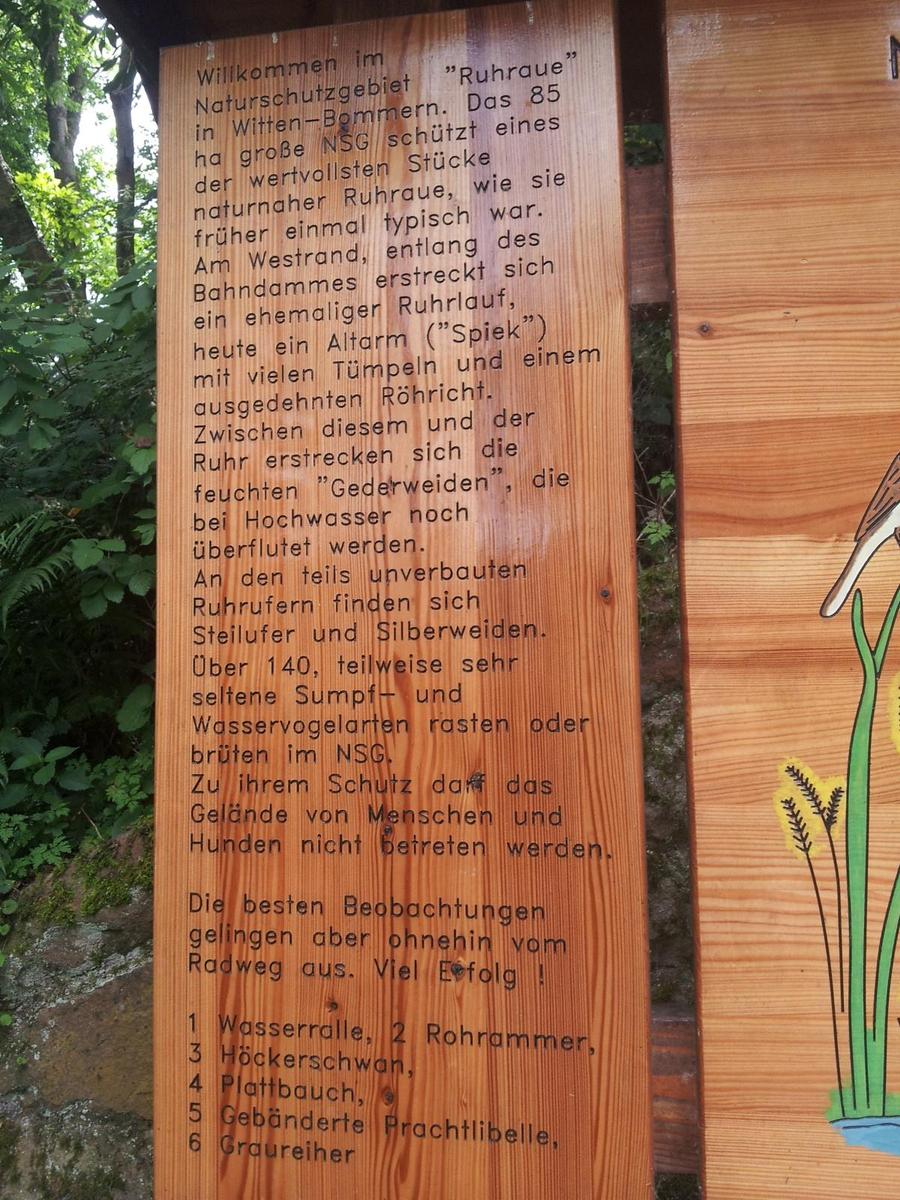 Willkommen im
Naturschutzgebiet "Ruhraue"
in Witten-Bommern. Das 85
ha große NSG schützt eines
der wertvollsten Stücke
naturnaher Ruhraue, wie sie
früher einmal typisch war.
Am Westrand, entlang des
Bahndammes erstreckt sich
ein ehemaliger Ruhrlauf,
heute ein Altarm ("Spiek")
mit vielen Tümpeln und einem
ausgedehnten Röhricht.
Zwischen diesem und der
Ruhr erstrecken sich die
feuchten "Gederweiden", die
bei Hochwasser noch
überflutet werden.
An den teils unverbauten
Ruhrufern finden sich
Steilufer und Silberweiden.
Über 140, teilweise sehr
seltene Sumpf- und
Wasservogelarten rasten oder
brüten im NSG.
Zu ihrem Schutz darf das
Gelände von Menschen und
Hunden nicht betreten werden.
Die besten Beobachtungen
gelingen aber ohnehin vom
Radweg aus. Viel Erfolg !
1 Wasserralle, 2 Rohrammer,
3 Höckerschwan,
4 Plattbauch,
5 Gebänderte Prachtlibelle,
6 Graureiher